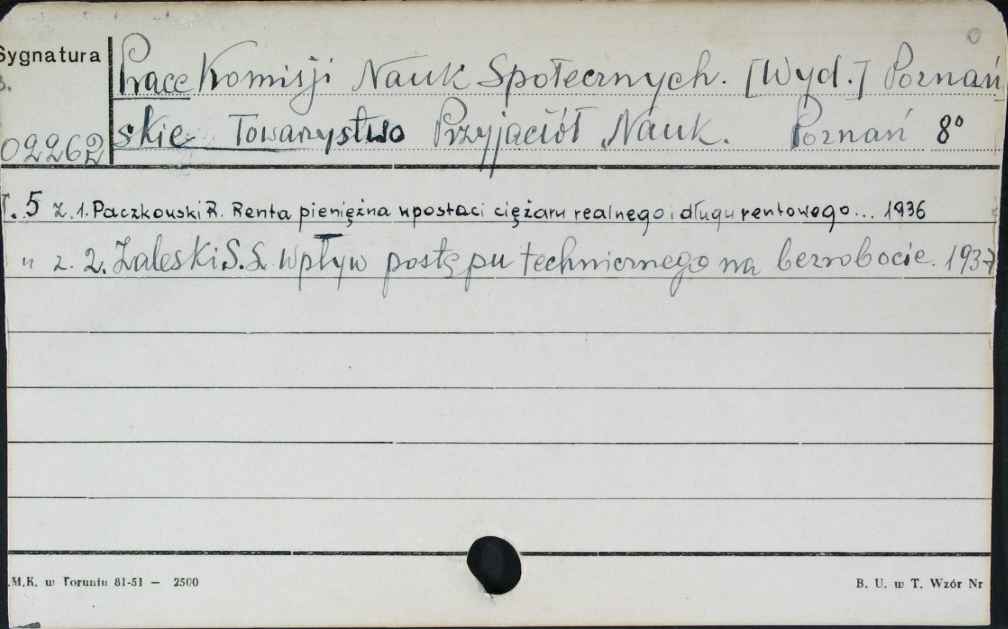 Sygnatura
02262
Prace Komisji Nauk Społecznych. [Wyd.] Poznań
skie Towarzystwo Przyjaciół Nauk. Poznań 8°
T. 5 z. 1. Paczkowski R. Renta pieniężna w postaci ciężaru realnego i długu rentowego... 1936
" z. 2. Zaleski S. S. Wpływ postępu technicznego na bezrobocie. 1937
.M.K. w Toruniu 81-51 — 2500
B. U. w T. Wzór Nr